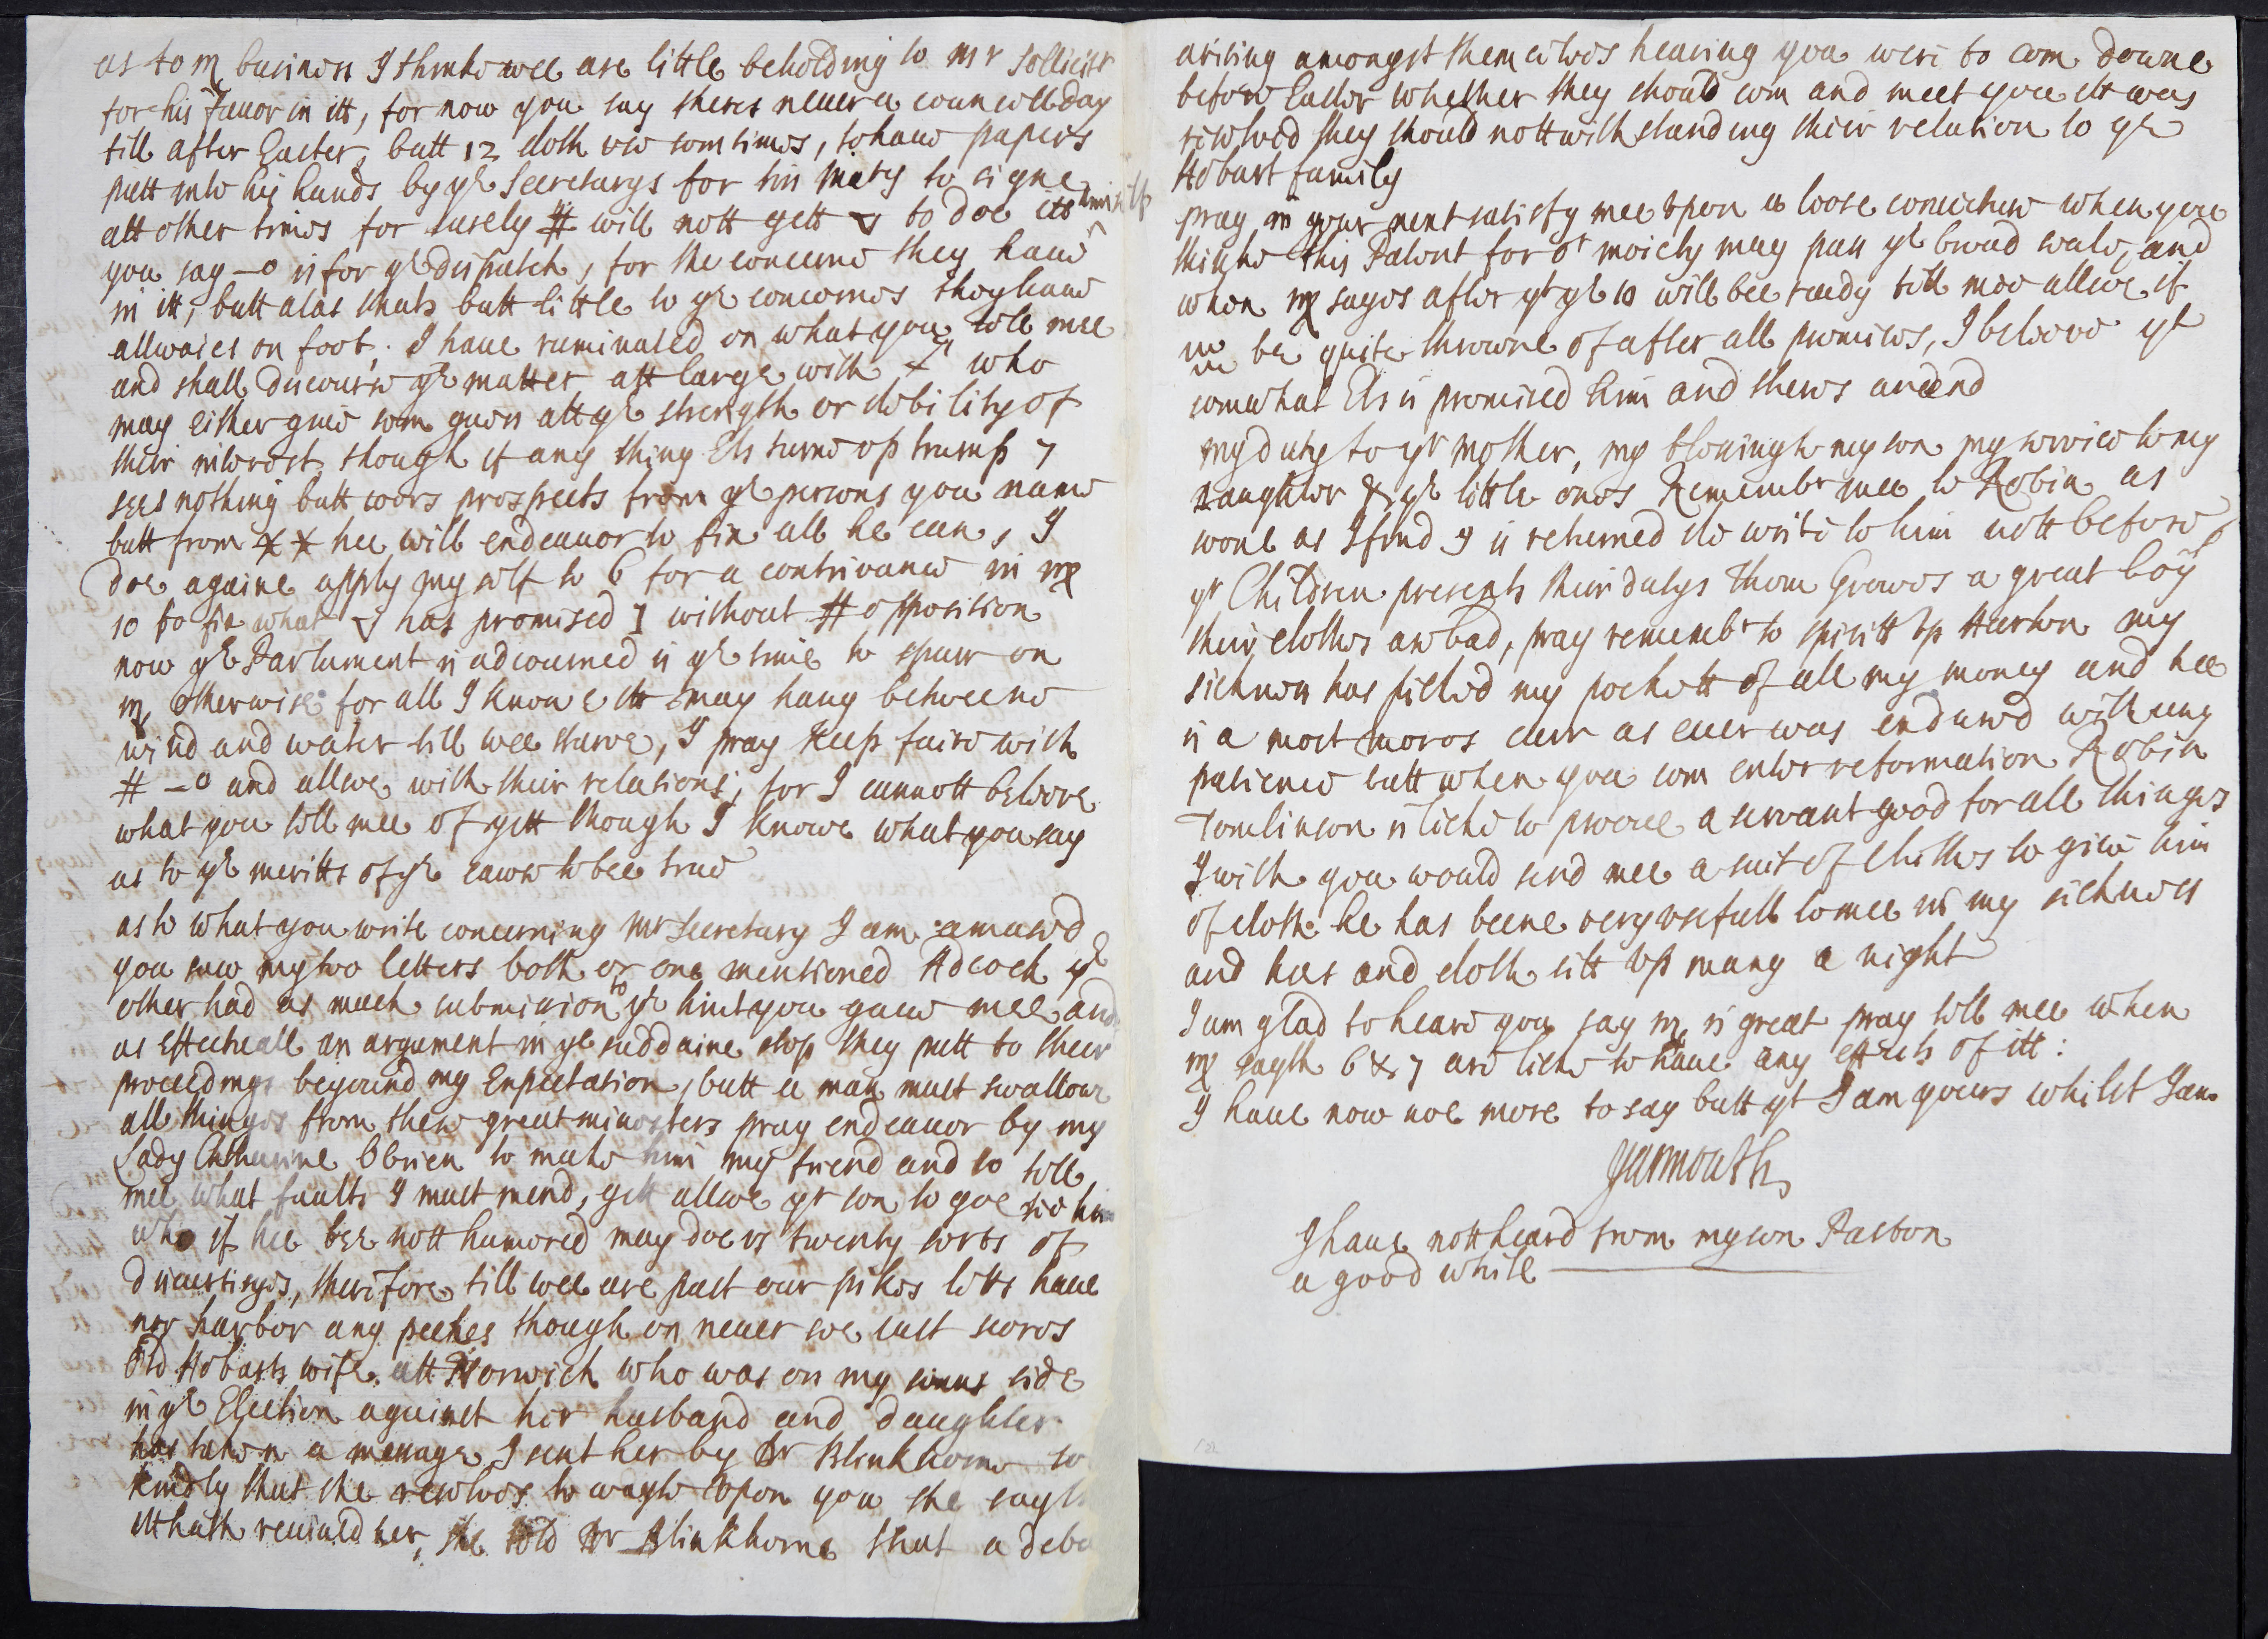 as to m business I thinke wee are little beholding to mr Sollicitr
for his Favor in itt, for now you say theres never a councell day
till after Easter, butt 12 doth use somtimes, to have papers
putt into his hands by ye Secretarys for his Maty to signe
att other times for surely # will nott gett to doe itt himself
you say -o is for ye dispatch, for the concerne they have
in itt, butt alas thats butt little to ye concernes they have
allwaies on foot. I have ruminated on what you tell mee
and shall discourse ye matter att large with + who
may either give som guess att ye strength or debility of
their interest though if any thing Els turne up trump 7
sees nothing butt wors prospects from ye persons you name
butt from ** hee will endeavor to fix all he can, I
doe againe apply my self to 6 for a contrivance in
10 to fix what has promised 7 without # opposition
now ye Parlument is adiourned is ye time to spurr on
m, otherwise for all I knowe itt may hang betweene
wind and water till wee starve, I pray Keep faire with
# -o and allsoe with their relations, for I cannott beleeve
what you tell mee of yett though I knowe what you say
as to ye meritts of ye cawse to bee true
as to what you write concerning Mr Secretary I am amased
you saw my two letters both or one mentioned Adcock ye
other had as much submission to ye hint you gave mee and
as Effectuall an argument in ye suddaine stop they putt to their
proceedings beyound my Expectation, butt a man must swallowe
all things from these great ministers pray endeavor by my
Lady Catharine Obrien to make him my friend and to tell
mee what faults I must mend, gett allsoe yr son to goe see him
who if hee bee nott humored may doe us twenty sorts of
discurtisyes, therefore till wee are past our pikes letts have
nor harbor any peekes though on never soe just scores
Old Hobarts wife att Norwich who was on my sonns side
in ye Election against her husband and daughter
has taken a message I sent her by Dr Blinkhorne so
kindly that she resolves to wayte upon you she sayth
itt hath revived her, she told Dr Blinkhorne that a deba
arising amongst themselves hearing you were to com downe
before Easter whether they should com and meet you itt was
resolved they should nottwithstanding their relation to ye
Hobart family
pray in your next satisfy mee upon a loose coniecture when you
thinke this Patent for or moiety may pass ye broad seale, and
when sayes after yt ye 10 will bee ready tell mee allsoe if
m be quite throwne of after all promises, I beleeve yt
somwhat Els is promised him and thers an end
my duty to yr mother, my blessing to my son my service to my
daughter & ye little ones Remembr mee to Robin as
soone as I find is returned Ile write to him nott before
yr Children presents their dutys Thom Growes a great boy
their clothes are bad, pray remembr to spiritt up Hurton my
sicknes has picked my pockett of all my money and hee
is a most moros curr as ever was endured with any
patience butt when you com enter reformation Robin
Tomlinson is like to proove a servant good for all things
I wish you would send mee a suit of clothes to give him
of cloth he has beene very usefull to mee in my sicknes
and has and doth sitt up many a night
I am glad to heare you say m is great pray tell mee when
sayth 6 & 7 are like to have any effects of itt:
I have now noe more to say butt yt I am yours whilst I am
Yarmouth
I have nott heard from my son Paston
a good while